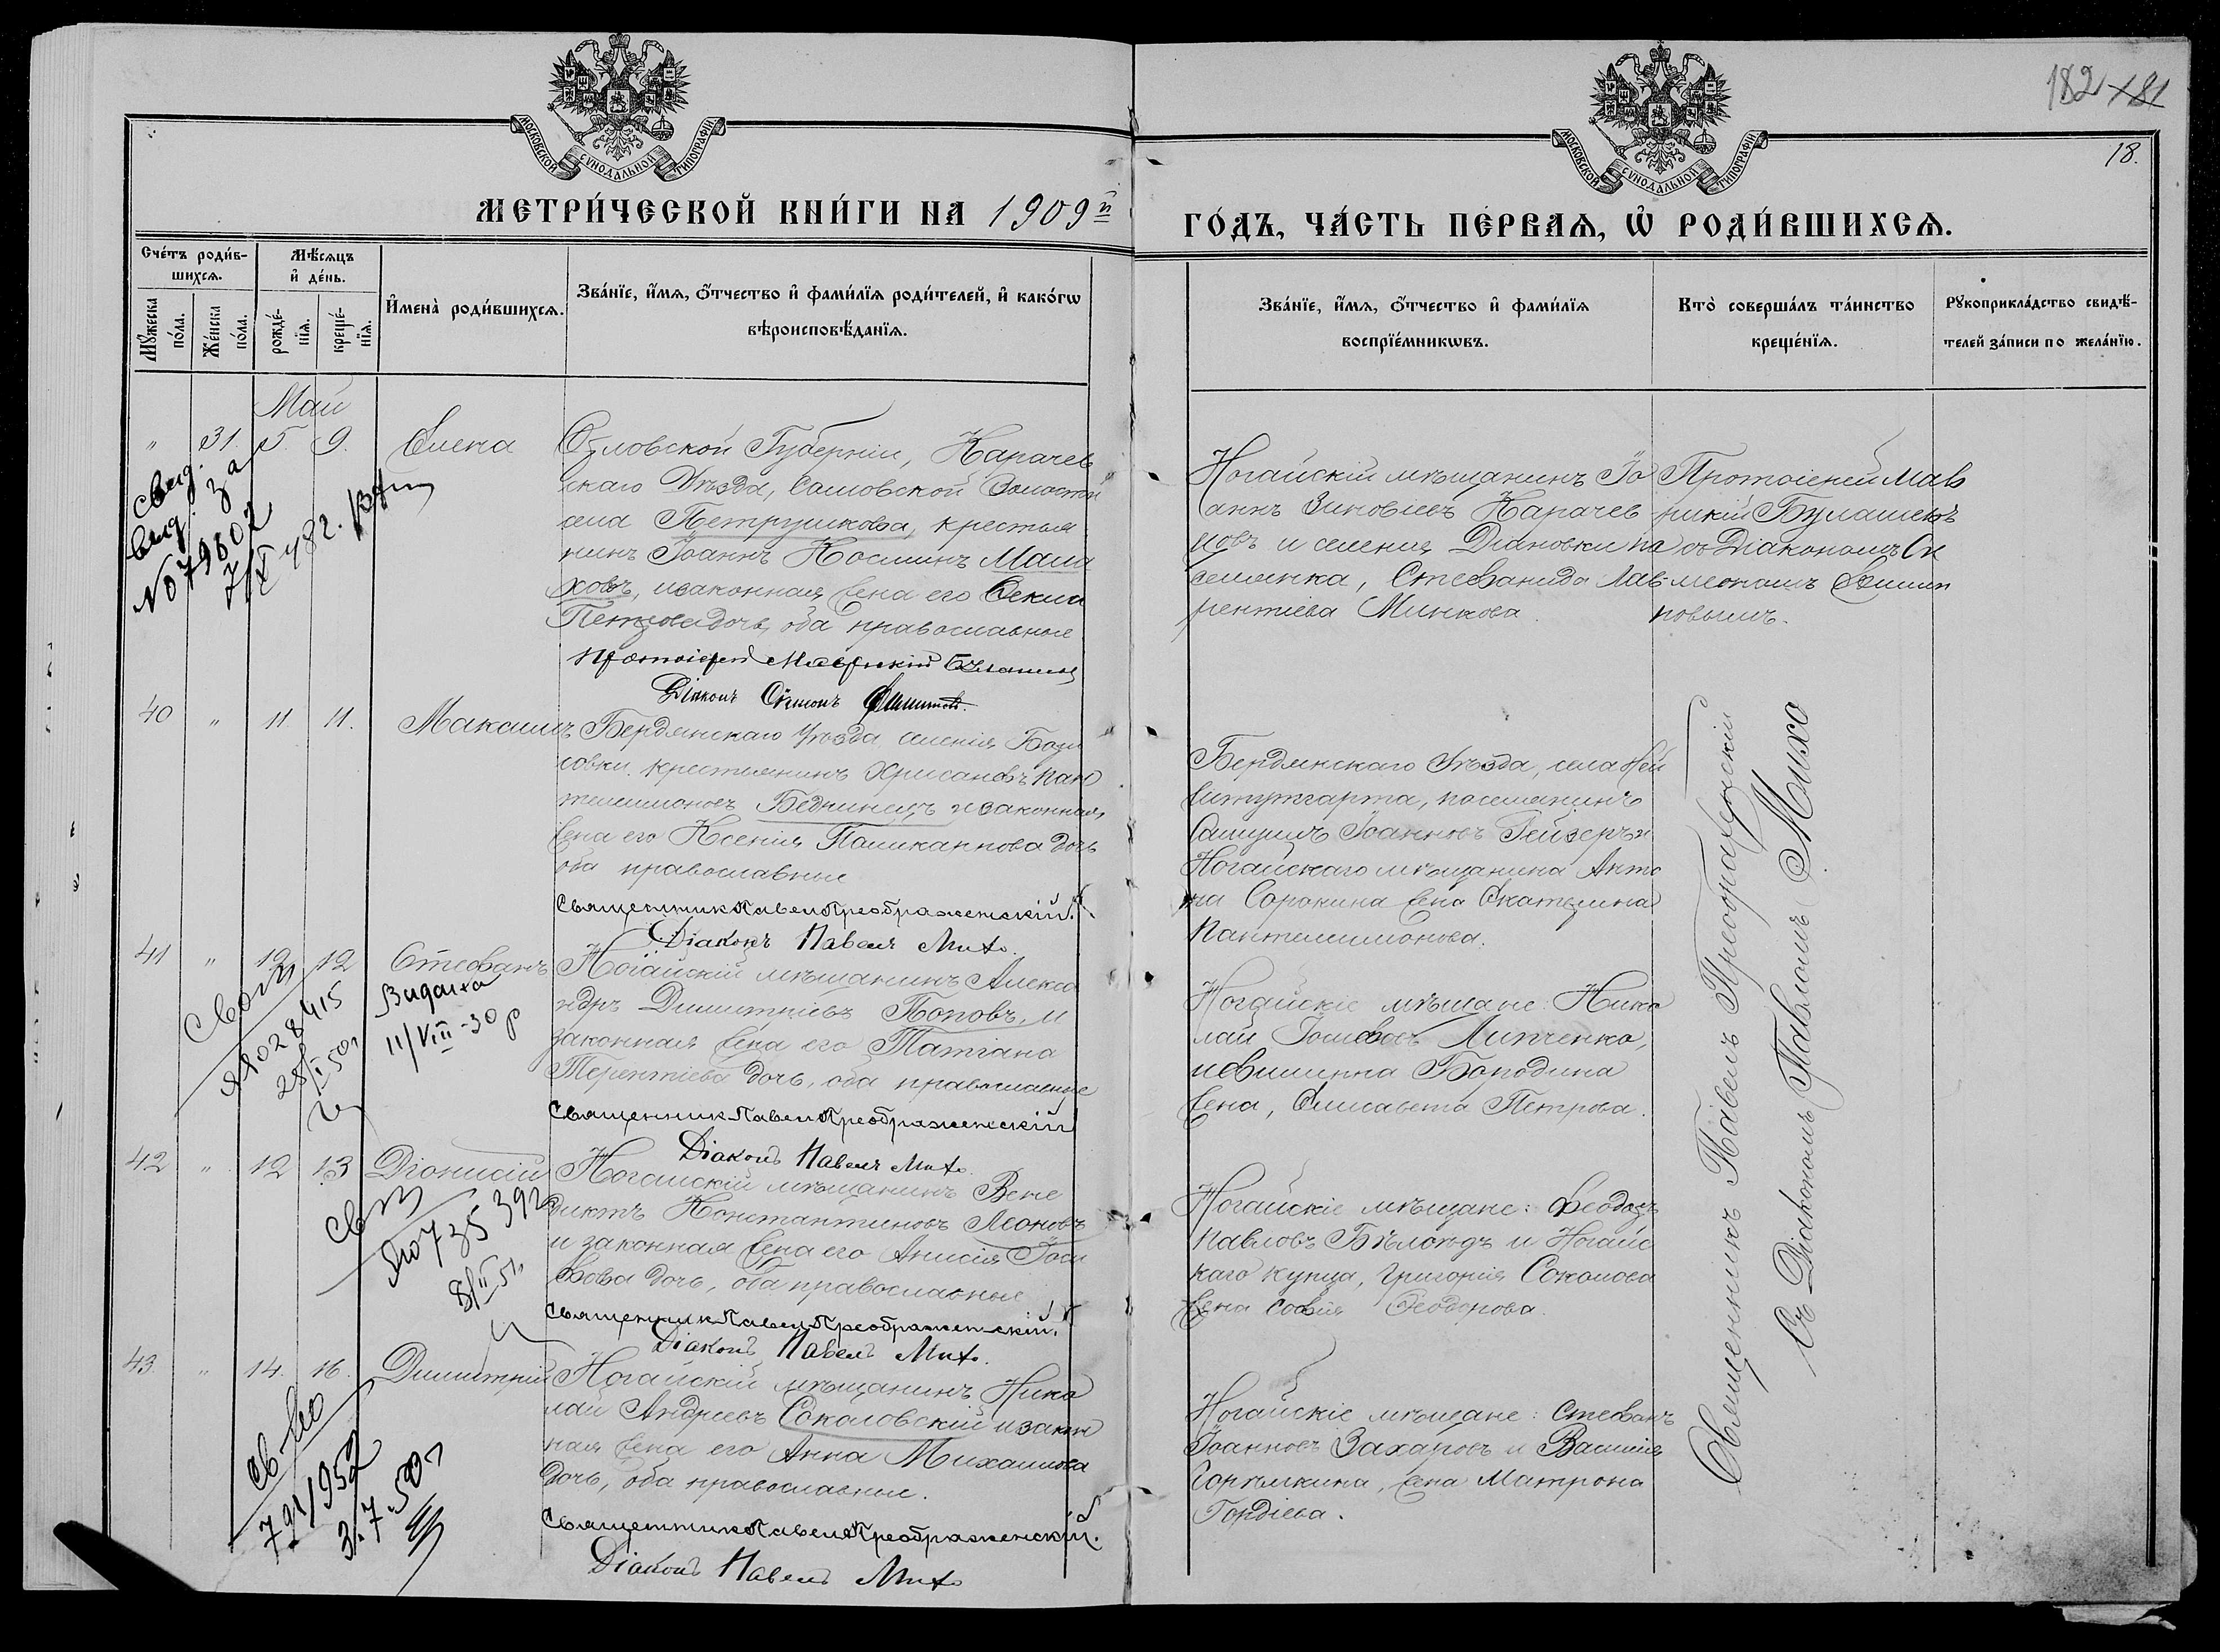 182 181
18.
МОСКОВСКОЙ СѴНОДАЛЬНОЙ ТИПОГРАФІИ
МОСКОВСКОЙ СѴНОДАЛЬНОЙ ТИПОГРАФІИ
МЕТРИ́ЧЕСКОЙ КНИ́ГИ НА 1909й
ГО́ДЪ, ЧА́СТЬ ПЕ́РВАѦ, Ѡ҆ РОДИ́ВШИХСѦ.
Сче́тъ роди́в-
шихсѧ.
Мꙋ́жеска
по́ла.
Же́нска
по́ла.
Мѣ́сѧцъ
и҆ де́нь.
рожде́-
нїѧ.
креще́-
нїѧ.
И҆мена̀ роди́вшихсѧ.
Зва́нїе, и҆́мѧ, ѻ҆́тчество и҆ фами́лїѧ роди́телей, и҆ како́гѡ
вѣроисповѣ́данїѧ.
Зва́нїе, и҆́мѧ, ѻ҆́тчество и҆ фами́лїѧ
воспрїе́мникѡвъ.
Кто̀ соверша́лъ та́инство
креще́нїѧ.
Рꙋкоприкла́дство свидѣ́-
телей за́писи по жела́нїю.
Май
" 31. 5. 9. Елена
Орловской Губерніи, Карачев
скаго Уѣзда, Самовской Волости
села Петрушкова, крестья
нинъ Іоаннъ Косминъ Мала
ховъ, и законная жена его Фекла
Петрова дочь, оба православные
Протоіерей Маврикій Булашевъ
Діаконъ Сѵмеонъ Филиповъ.
Ногайскій мѣщанинъ Іо
аннъ Зиновіевъ Карачев
цовъ и селенія Діановки по
селянка, Стефанида Лав
рентіева Минкова.
Протоіерей Мав
рикій Булашевъ
съ Діакономъ Си
меономъ Филип
повымъ.
свид. за
выд.
No 79802
40 " 11. 11. Максимъ
Бердянскаго Уѣзда селенія Бого
ловки крестьянинъ Хрисанѳъ Пан
телеимоновъ Бедниницъ и законная
жена его Ксенія Паликапнова дочь
оба православные
Священникъ Павелъ Преображенскій.
Діаконъ Павелъ Михо.
Бердянскаго Уѣзда, села Ней
Штутгарта, поселянинъ
Самуилъ Іоанновъ Гейзеръ и
Ногайскаго мѣщанина Анто
на Сорокина жена Екатерина
Пантелеимонова.
41 " 12 12 Стефанъ
Ногайскій мѣщанинъ Алекса
ндръ Димитріевъ Поповъ, и
законная жена его Татіана
Терентіева дочь, оба православные
Священникъ Павелъ Преображенскій
Діаконъ Павелъ Михо.
Видана
11/VIII-30 р
Ногайскіе мѣщане: Нико
лай Іосифовъ Липченко,
и Филиппа Бородина
жена, Елисавета Петрова.
42 " 12 13 Діонисій
Ногайскій мѣщанинъ Вене
диктъ Константиновъ Леоновъ
и законная жена его Анисія Іоси
фова дочь, оба православные
Священникъ Павелъ Преображенскій.
Діаконъ Павелъ Михо.
No 735392
8/II 51.
Ногайскіе мѣщане: Феодоръ
Павловъ Бѣлоѣдъ и Ногайс
каго купца, Григорія Соколова
жена Софія Феодорова.
43. " 14. 16. Димитрій
Ногайскій мѣщанинъ Нико
лай Андреевъ Соколовскій и закон
ная жена его Анна Михаилова
дочь, оба православные.
Священникъ Павелъ Преображенскій.
Діаконъ Павелъ Михо
Ногайскіе мѣщане: Стефанъ
Іоанновъ Захаровъ и Василія
Горемыкина, жена Матрона
Гордіева.
Священникъ Павелъ Преображенскій
Съ Діакономъ Павломъ Михо